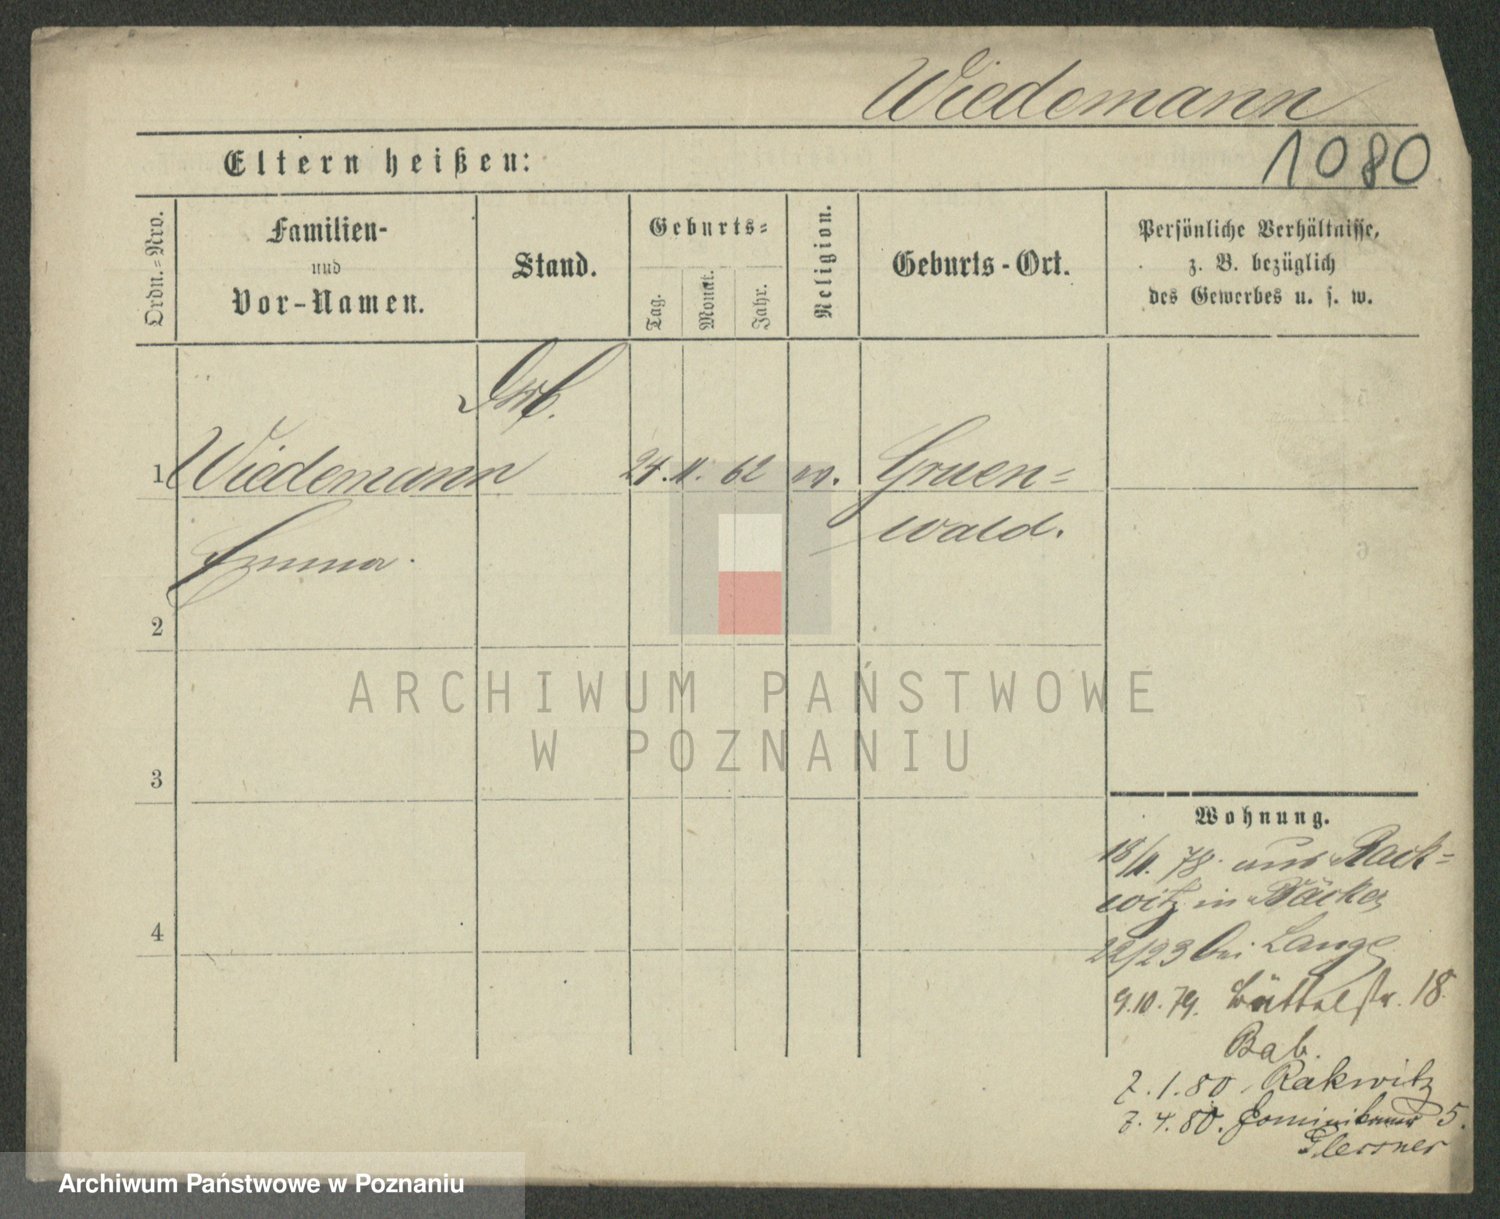 Wiedemann
1080
Eltern heißen:
Ordn.=Nro.
Familien-
und
Vor-Namen.
Stand.
Geburts=
Tag.
Monat.
Jahr.
Religion.
Geburts-Ort.
Persönliche Verhältnisse,
z. B. bezüglich
des Gewerbes u. s. w.
1 Wiedemann 24. 11. 62 Gruen=
wald.
Emma.
2
3
4
ARCHIWUM PAŃSTWOWE
W POZNANIU
Wohnung.
18/11. 78. aus Rack=
witz in Bäcker
22/23 bei Lange
9.10.79. Büttelstr. 18
Bab.
7.1.80. Rakwitz
7.4.80. Dominikaner 5.
Archiwum Państwowe w Poznaniu